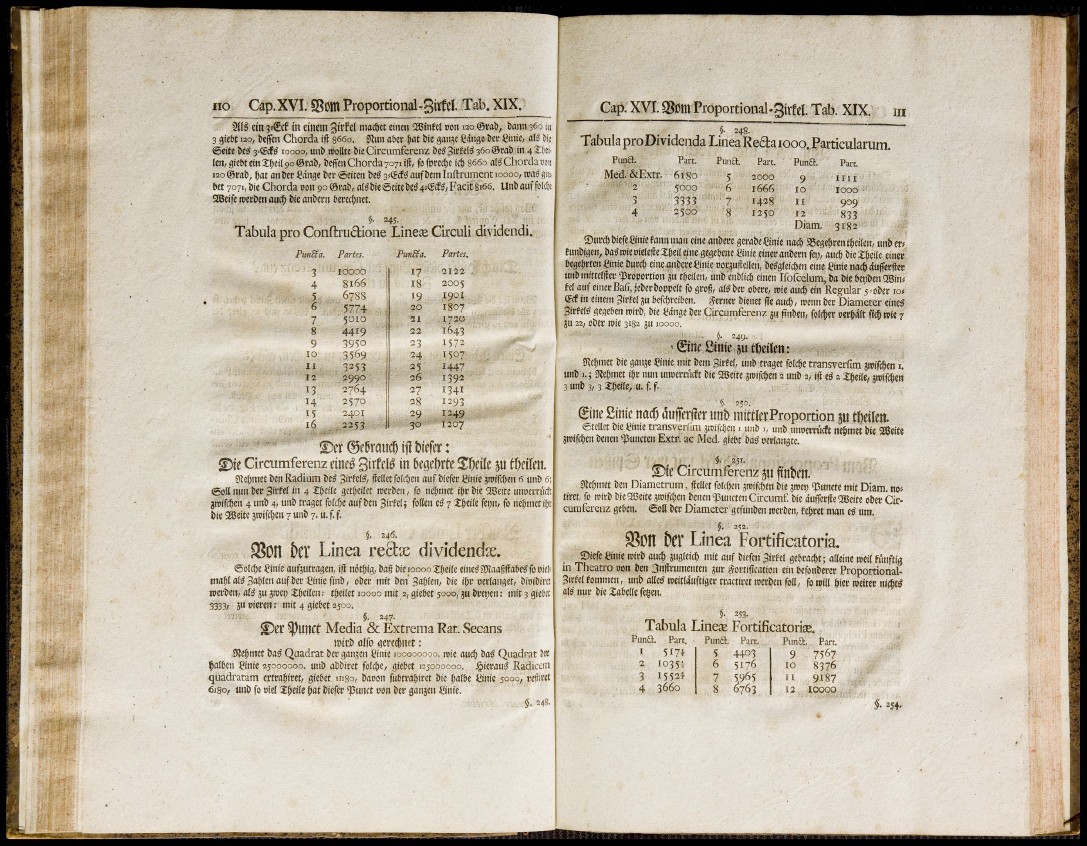 110 Cap. XVI. Vom Proportional-Zirkel. Tab. XIX.
Als ein 3-Eck in einem Zirkel machet einen Winkel von 120 Grad, dann 360 in
3 giebt 120, dessen Chorda ist 8660. Nun aber hat die ganze Länge der Linie, als die
Seite des 3-Ecks 10000, und wollte die Circumferenz des Zirkels 360 Grad in 4 Thei-
len, giebt ein Theil 90 Grad, dessen Chorda 7071 ist, so spreche ich 8660 als Chorda von
120 Grad, hat an der Länge der Seiten des 3-Ecks auf dem Instrument 10000, was gie-
bet 7071, die Chorda von 90 Grad, als die Seite des 4-Ecks, Facit 8166. Und auf solche
Weise werden auch die andern berechnet.
§. 245.
Tabula pro Constructione Lineæ Circuli dividendi.
Puncta. Partes. Puncta. Partes.
3 10000 17 2122
4 8166 18 2005
5 6788 19 1901
6 5774 20 1807
7 5010 21 1720
8 4419 22 1643
9 3950 23 1572
10 3569 24 1507
11 3253 25 1447
12 2990 26 1392
13 2764 27 1341
14 2570 28 1293
15 2401 29 1249
16 2253 30 1207
Der Gebrauch ist dieser:
Die Circumferenz eines Zirkels in begehrte Theile zu theilen.
Nehmet den Radium des Zirkels, stellet solchen auf dieser Linie zwischen 6 und 6;
Soll nun der Zirkel in 4 Theile getheilet werden, so nehmet ihr die Weite unverrückt
zwischen 4 und 4, und traget solche auf den Zirkel; sollen es 7 Theile seyn, so nehmet ihr
die Weite zwischen 7 und 7. u. s. f.
§. 246.
Von der Linea rectæ dividendæ.
Solche Linie aufzutragen, ist nöthig, daß die 10000 Theile eines Maaßstabes so viel-
mahl als Zahlen auf der Linie sind, oder mit den Zahlen, die ihr verlanget, dividiret
werden, als zu zwey Theilen: theilet 10000 mit 2, giebet 5000, zu dreyen: mit 3 giebet
3333, zu vieren: mit 4 giebet 2500.
§. 247.
Der Punct Media & Extrema Rat. Secans
wird also gerechnet:
Nehmet das Quadrat der ganzen Linie 100000000. wie auch das Quadrat der
halben Linie 25000000. und addiret solche, giebet 125000000. Hieraus Radicem
quadratam extrahiret, giebet 11180, davon subtrahiret die halbe Linie 5000, restiret
6180, und so viel Theile hat dieser Punct von der ganzen Linie.
§. 248.
Cap. XVI. Vom Proportional-Zirkel. Tab. XIX. 111
§. 248.
Tabula pro Dividenda Linea Recta 1000. Particularum.
Punct. Part. Punct. Part. Punct. Part.
Med. & Extr. 6180 5 2000 9 1111
2 5000 6 1666 10 1000
3 3333 7 1428 11 909
4 2500 8 1250 12 833
Diam. 3182
Durch diese Linie kann man eine andere gerade Linie nach Begehren theilen, und er-
kundigen, das wie vieleste Theil eine gegebene Linie einer andern sey, auch die Theile einer
begehrten Linie durch eine andere Linie vorzustellen, desgleichen eine Linie nach äusserster
und mittelster Proportion zu theilen, und endlich einen Isoscelum, da die beyden Win-
kel auf einer Basi, jeder doppelt so groß, als der obere, wie auch ein Regular 5- oder 10-
Eck in einem Zirkel zu beschreiben. Ferner dienet sie auch, wenn der Diameter eines
Zirkels gegeben wird, die Länge der Circumferenz zu finden, solcher verhält sich wie 7
zu 22, oder wie 3182 zu 10000.
§. 249.
Eine Linie zu theilen:
Nehmet die ganze Linie mit dem Zirkel, und traget solche transversim zwischen 1.
und 1.; Nehmet ihr nun unverrückt die Weite zwischen 2 und 2, ist es 2 Theile, zwischen
3 und 3, 3 Theile, u. s. f.
§. 250.
Eine Linie nach äusserster und mittler Proportion zu theilen.
Stellet die Linie transversim zwischen 1 und 1, und unverrückt nehmet die Weite
zwischen denen Puncten Extr. ac Med. giebt das verlangte.
§. 251.
Die Circumferenz zu finden.
Nehmet den Diametrum, stellet solchen zwischen die zwey Puncte mit Diam. no-
tiret, so wird die Weite zwischen denen Puncten Circumf. die äusserste Weite oder Cir-
cumferenz geben. Soll der Diameter gefunden werden, kehret man es um.
§. 252.
Von der Linea Fortificatoria.
Diese Linie wird auch zugleich mit auf diesen Zirkel gebracht; alleine weil künftig
in Theatro von den Instrumenten zur Fortification ein besonderer Proportional-
Zirkel kommen, und alles weitläuftiger tractiret werden soll, so will hier weiter nichts
als nur die Tabelle setzen.
§. 253.
Tabula Lineæ Fortificatoriæ.
Punct. Part. Punct. Part. Punct. Part.
1 517½ 5 4403 9 7567
2 1035½ 6 5176 10 8376
3 1552½ 7 5965 11 9187
4 3660 8 6763 12 10000
§. 254.